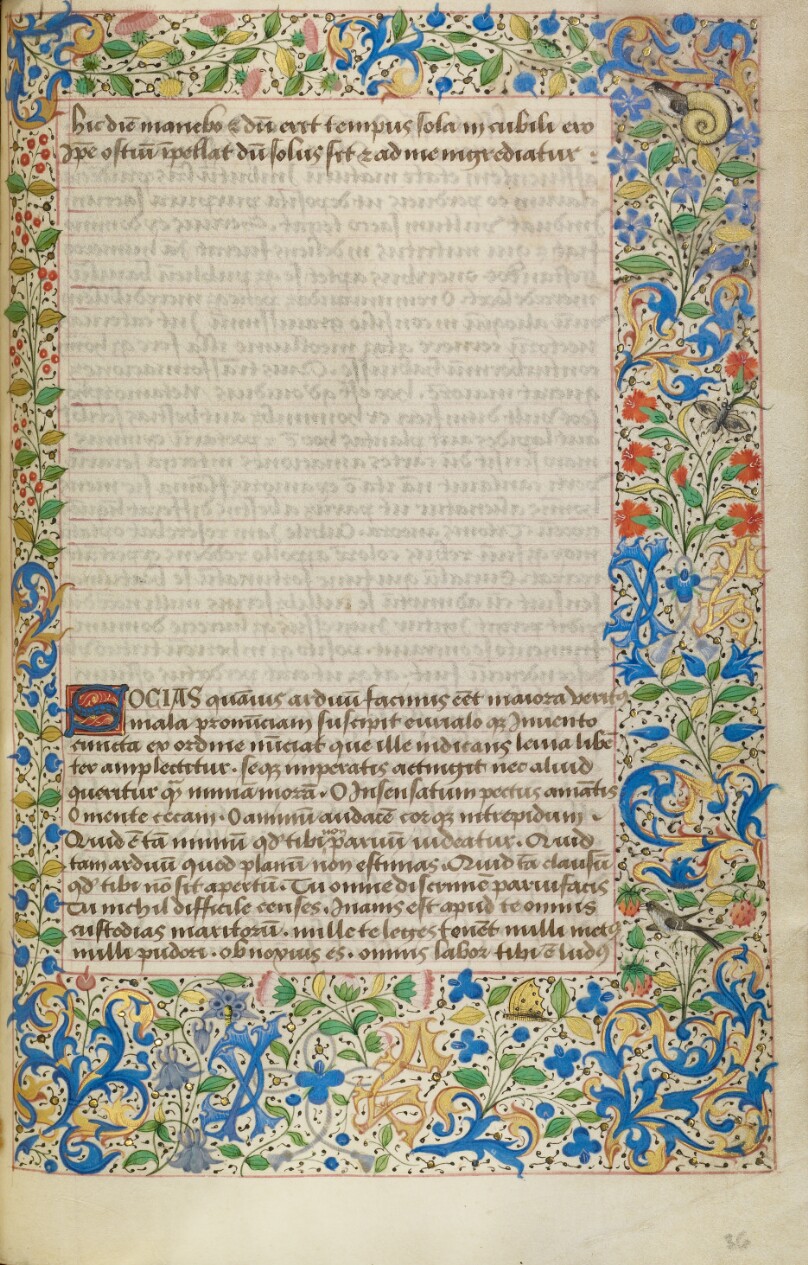 hic die manebo & dū erit tempus sola in cubili ero
Ipē ostiū īpellat dū solus sit & ad me ingrediatur :
SOCIAS quāuis arduū facinus eēt maiora veritꝰ
mala pronūciam suscipit eurialo qꝫ Inuento
cuncta ex ordine nūciat que ille iudicans leuia libē
ter amplectitur . seqꝫ imperatis accingit nec aliud
queritur qꝫ nimia morā . O Insensatum pectus amātis
O mente cecam . O animū audacē cor qꝫ intrepidum .
Quid ē tā nimiū qd' tibi non paruū videatur . Quid
tam arduū quod planū non estimas . Quid tā clausū
qd' tibi nō sit apertū . Tu omne discrimē parui facis
Tu nichil difficile censes . Inanis est apud te omnis
custodias maritorū . nulle te leges tenēt nulli metꝰ
nulli pudori . obnoxius es . omnis labor tibi ē ludꝰ
36